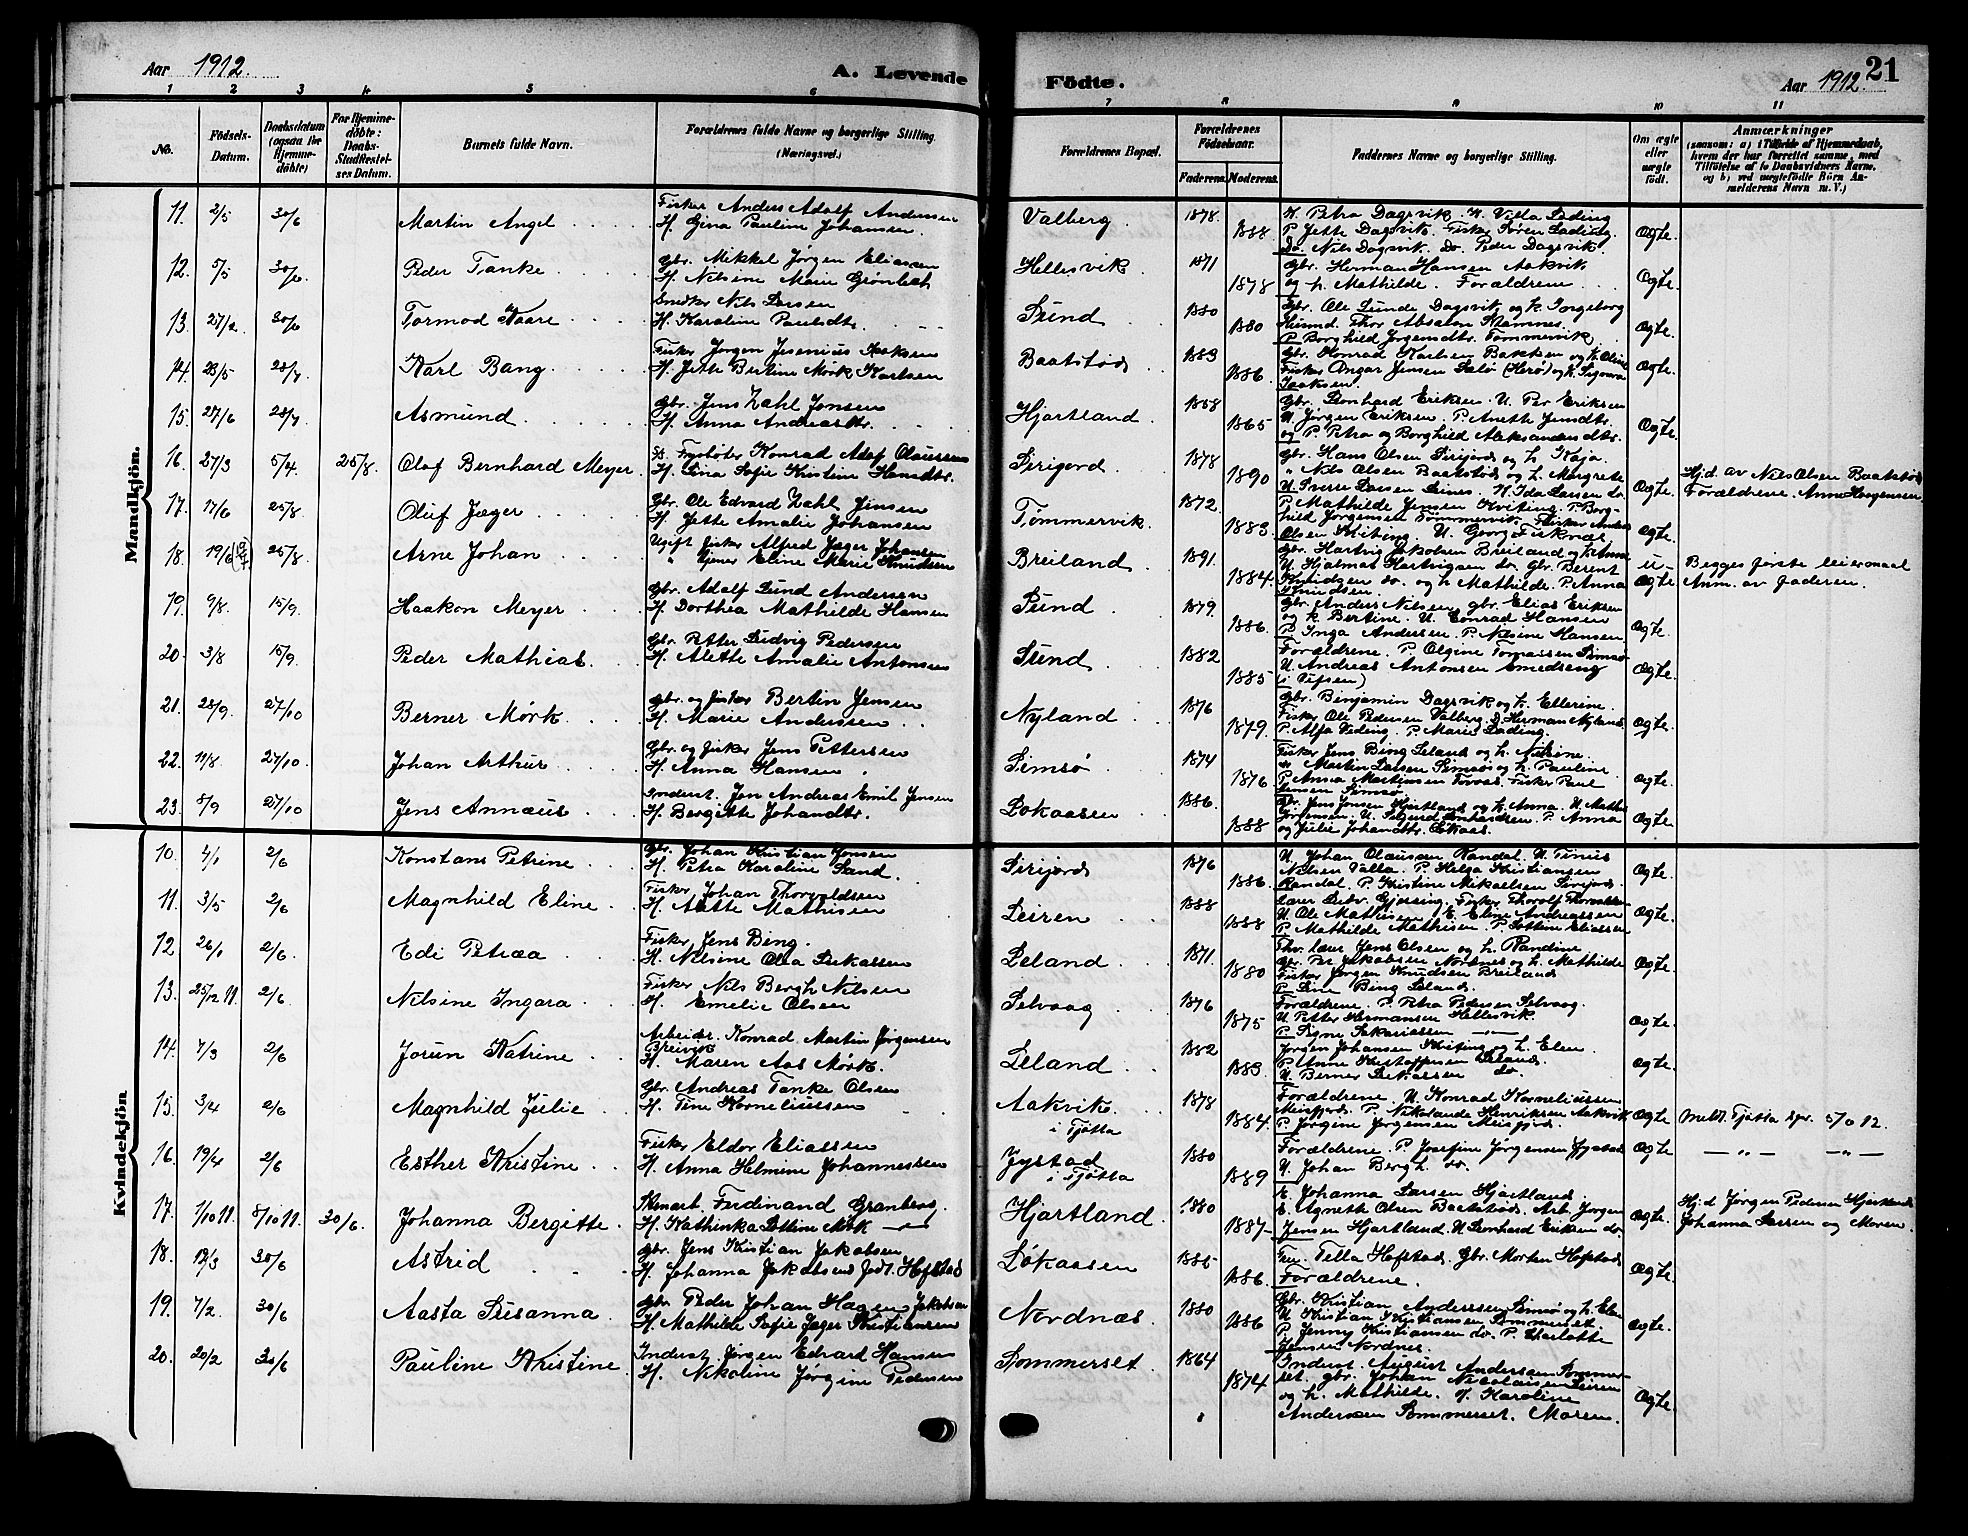 Aar 1912.
A. Levende
Födte.
21
Aar 1912.
1 2 3 4 5 6 7 8 9 10 11
No.
Födsels-Datum.
Daabsdatum (ogsaa for Hjemme-döbte)
For Hjemme-döbte: Daabs-Stadfæstel-ses Datum.
Barnets fulde Navn.
Forældrenes fulde Navne og borgerlige Stilling. (Næringsvei.)
Forældrenes Bopæl.
Forældrenes Födselsaar.
Faderens. Moderens.
Faddernes Navne og borgerlige Stilling.
Om ægte eller uægte födt.
Anmærkninger
Mandkjön.
11. 2/5 30/6 Martin Angel Fisker Anders Adolf Andersen
H. Gina Pauline Johansen. Valberg 1878. 1888. Ægte.
P. Jette Dagsvik. Fisker Søren Lading.
Do. Nils Dagsvik. Do. Peder Dagsvik.
12. 5/5 30/6 Peder Tanke Gbr. Mikkel Jørgen Eliassen
H. Nilsine Marie Grønbech Hellesvik 1871 1878 Gbr. Herman Hansen Aakvik
og h. Mathilde. Forældrene Ægte.
13. 27/2 30/6 Tormod Kaare Snedker Nils Larsen
H. Karoline Paulsdtr. Sund 1880 1880 Gbr. Ole Lunde Dagsvik og h. Ingeborg
P. Borghild Jørgensdtr. Tømmervik. Ægte.
14. 23/5 28/7 Karl Bang Fisker Jørgen Jesenius Isaksen
H. Jette Bertine Mørk Karlsen Baatstød 1883 1886. Ægte.
Isaksen.
15. 27/6 28/7 Asmund Gbr. Jens Zahl Jensen
H. Anna Andreasdtr. Hjartland 1868 1865 Gbr. Leonhard Eriksen. U. Per Eriksen
U. Jørgen Eriksen. P. Anette Jensdtr.
og P. Petra og Borghild Aleksandersdtr. Ægte.
16. 27/3 5/4 25/8. Olaf Bernhard Meyer Konrad Adof Olaussen
H. Lina Sofie Kristine Hansdtr. Sirijord 1878 1890 Gbr. Hans Olsen Sirijord og h. Kaja.
" Nils Olsen Baatstød og h. Margrete
U. Sverre Larsen Leines. Ida Larsen do. Ægte. Hj.d. av Nils Olsen Baatstød
Forældrene.
17. 17/6 25/8 Oluf Jæger Gbr. Ole Edvard Zahl Jensen
H. Jette Amalie Johansen Tømmervik 1872. 1883. P. Mathilde Jensen Kviting. P. Borg-
hild Jørgensen Tømmervik. Fisker Anders
Olsen Kviting. U. Georg Ægte.
18. 19/6 25/8 Arne Johan Ugift fisker Alfred Jæger Johansen
" tjener Eline Marie Knudsen Breiland 1891. 1884. Gbr. Hartvig Jakobsen Breiland og h. Anna
U. Hjalmar Hartvigsen do. Gbr. Berent
Knudsen do. og h. Mathilde. P. Anna
Knudsen. u-
Ægte Begges første leiermaal
Anm. av faderen.
19. 9/8. 15/9. Haakon Meyer Gbr. Adolf Lund Andersen
H. Dorthea Mathilde Hansen Sund 1879. 1886. Gbr. Anders Nilsen, gbr. Elias Eriksen
og h. Bertine. U. Conrad Hansen
P. Inga Andersen. P. Nilsine Hansen Ægte.
20. 3/8 15/9. Peder Mathias Gbr. Petter Ludvig Pedersen
H. Alette Amalie Antonsen Sund 1882 1885 Forældrene. P. Olgine Tomassen Simsø
U. Andreas Antonsen Smedseng
(i Vefsen) Ægte.
21. 23/9. 27/10 Berner Mørk Gbr. og fisker Bertin Jensen
H. Marie Anderssen Nyland 1876 1879. Gbr. Benjamin Dagsvik og h. Ellerine.
Fisker Ole Pedersen Valberg. Herman Nyland
P. Alfa P. Marie Lading. Ægte.
22. 11/8. 27/10. Johan Arthur Gbr. og fisker Jens Pettersen
H. Anna Hansen Simsø 1874 1876 Fisker Jens Bing Leland og h. Nilsine.
Martin Larsen Simsø og h. Pauline
P. Anna Martinsen Fisker Paul
Jensen Simsø. Ægte
23. 5/9 27/10 Jens Annæus Inderst. Jon Andreas Emil Jensen
H. Bergitte Johandtr. Løkaasen 1886. 1888 Gbr. Jens Jensen Hjartland og h. Anna. U. Mathis
Jørgensen. U. Sigurd Leonhardsen. P. Anna
og Julie Johandtr. Løkaas. Ægte.
Kvindekjön
10. 4/1 2/6 Konstans Petrine Gbr. Johan Kristian Jensen
H. Petra Karoline Sand. Sirijord 1876 1886. U. Johan Olaussen Randal. U. Tinius
Nilsen Valla. P. Helga Kristiansen
Randal. P. Kristine Mikaelsen Sirijord. Ægte.
11. 3/5 2/6 Magnhild Eline Fisker Johan Thorvaldsen
H. Aette Mathisen Leiren 1888 1888 Fisker Thorolf Thorvaldsen
U. Ole Mathisen. E. Eline Andreassen
P. Mathilde Mathisen. P. Lottine Eliassen Ægte.
12. 26/1 2/6. Edi Petræa Fisker Jens Bing.
H. Nilsine Olea Lukassen Leland 1871. 1880 Fhv. lærer Jens Olsen og h. Randine
Gbr. Per Jakobsen Nordnes og h. Mathilde
Fisker Jørgen Knudsen Breiland
P. Line Bing Leland. Ægte.
13. 25/12 11. 2/6. Nilsine Ingara Fisker Nils Bergh Nilsen
H. Emelie Olsen Selvaag 1876 1875 Forældrene. P. Petra Pedersen Selvaag.
U. Petter Hermansen Hellesvik.
P. Signe Sakariassen Ægte.
14. 7/3 2/6 Jorun Katrine Arbeider. Konrad Martin Jørgensen
Breivik
H. Maren Aas Mørk. Leland 1882 1883 Jørgen Johansen Kviting og h. Elen
P. Anne Kristoffersen Leland.
U. Berner Lukassen do. Ægte.
15. 3/4 2/6 Magnhild Julie Gbr. Andreas Tanke Olsen
H. Tine Korneliussen Aakvik
i Tjøtta 1878 1884. Forældrene. U. Konrad Korneliussen
Meisfjord. P. Nikolande Henriksen Aakvik
P. Jørgine Jørgensen Meisfjord. Ægte Meldt Tjøtta spr. 5/8 12.
16. 19/4 2/6 Esther Kristine Fisker Eldor Eliassen
H. Anna Helmine Johannessen Jystad
i Tjøtta 1880 1889 Forældrene. P. Josefine Jørgensen Jystad
U. Johan Bergh. do. Ægte — " — — " —
17. 1/10 11. 8/10 11. 30/6. Johanna Bergitte. Ferdinand Granberg.
H. Kathinka Lottine Mørk — " — Hjartland. 1880 1887- E. Johanna Larsen Hjartland.
E. Agneth Olsen Baatstød. Arb. Jørgen
Jensen Hjartland. U. Leonhard Eriksen do. Ægte Hj.d. Jørgen Pedersen Hjartland
Johanna Larsen og Moren.
18. 13/3 30/6 Astrid Gbr. Jens Kristian Jakobsen
H. Johanna Jakobsen født Hofstad Løkaasen 1885 1886. Tella Hofstad. Gbr. Morten Hofstad
Forældrene. Ægte.
19. 7/2 30/6 Aasta Susanna. Gbr. Peder Johan Hagen Jakobsen
H. Mathilde Sofie Jæger Kristiansen Nordnæs 1880 1886 Gbr. Kristian Anderssen Simsø og h. Elen
U. Kristian Kristiansen Sommerset.
P. Jenny Kristiansen do. P. Charlotte
Jensen Nordnes. Ægte.
20. 20/2 30/6 Pauline Kristine Inderst Jørgen Edvard Hansen
H. Nikoline Jørgine Pedersen Sommerset. 1864 1874 Inderst. August Anderssen Sommer-
set. gbr. Johan Nicolaisen Leiren
og h. Mathilde. Karoline
Anderssen Sommerset. Maren. Ægte.